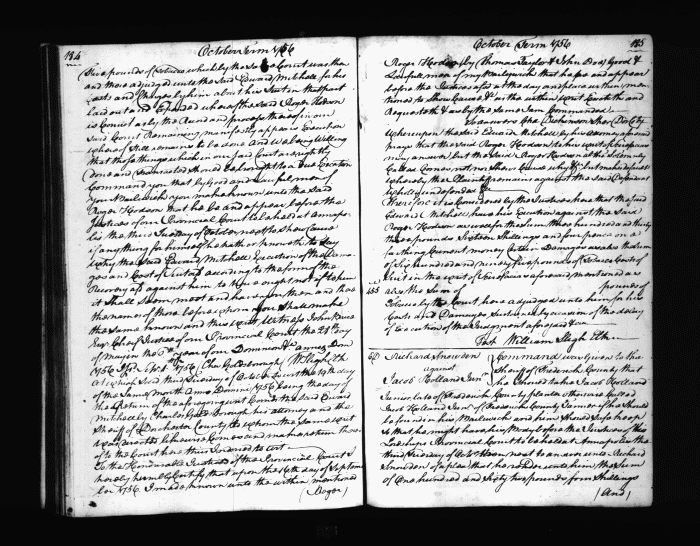 184
October Term 1756
pounds of which by the Court was then
and there adjudged unto the said Edward Mitchell for his
Costs and Charges by him about his Suit in that part
laid out and Expended whereof the said Roger Hodson
is Convict as by the Record and process thereof in our
said Court Remaining manifestly appears Execution
whereof Still remains to be done And We being Willing
that those things which in our said Court are rightly
done and should be brought to a due Execution
Command you that by Good and Lawful men of
your Bailiwick you make known unto the said
Roger Hodson that he be and appear before the
Justices of our Provincial Court to be held at Annapo-
lis the third Tuesday of October next to show cause
if anything for himself he hath or know to say
why the said Edward Mitchell Execution of the Dama-
ges and Cost of Suit according to the form of the
Recovery aforesaid against him to have ought not if to him
it shall seem meet and have you then and there
the names of those before whom you shall make
the same known and this Writ Witness John Brice
Esqr. Chief Justice of our Provincial Court the 21st day
of May in the year of our Dominion &c Anno Dom
1756 1756 Goldsborough Wm Sligh Clk
At which said third Tuesday of October to wit the day
of the same month Anno Domini 1756 being the day of
the return of the aforesaid Writ comes the said Edward
Mitchell by Charles Goldsborough his attorney and the
Sheriff of Dorchester County to whom the same writ
was directed likewise Comes and makes return there-
of to the Court here thus Indorsed to wit
To the Honourable Justices of the Provincial Court I
hereby humbly Certify that upon the 16th day of Septem-
ber 1756 I made known unto the within mentioned
(Roger)
October Term 1756
185
Roger Hodson by Thomas Taylor & John Good &
Lawful men of my Bailiwick that he be and appear
before the Justices at the day and place within men-
tioned to Show Cause &c as the within writ
Requires &c as by the same I am Commanded
So answers
Whereupon the said Edward Mitchell by his attorney aforesaid
prays that the said Roger Hodson to his writ aforesaid
may answer but the said Roger Hodson at his
Called Comes not nor Shews Cause why &c but makes default
whereby the Plaintiff remains against the said Defendant
wholly undefended
Therefore it is Considered by the Justices here that the said
Edward Mitchell have his Execution against the said
Roger Hodson as well for the sum of one hundred and thirty
three pounds Sixteen Shillings and four pence
farthing Current money Certain Damages as also the sum
of Six hundred and ninety five pounds of Tobacco Costs of
Suit in the writ of Scire facias aforesaid mentioned as
also the Sum of pounds of
Tobacco by the Court here adjudged unto him for his
Costs and Damages Sustained by occasion of the delay
of Execution of the Judgment aforesaid &c
Test William Sligh Clk
Richard Snowden
against
Jacob Holland Junr
Command was given to the
Sheriff of Frederick County that
he should take Jacob Holland
Junior late of Frederick County planter otherwise called
Jacob Holland Junr. of Frederick County Farmer if he should
be found in his Bailiwick and him should Safe keep
so that he might have his Body before the Justices of his
Lordships Provincial Court to be held at Annapolis the
third Tuesday of October next to answer unto Richard
Snowden of a plea that he render unto him the Sum
of One hundred and Sixty two pounds four Shillings
(And)